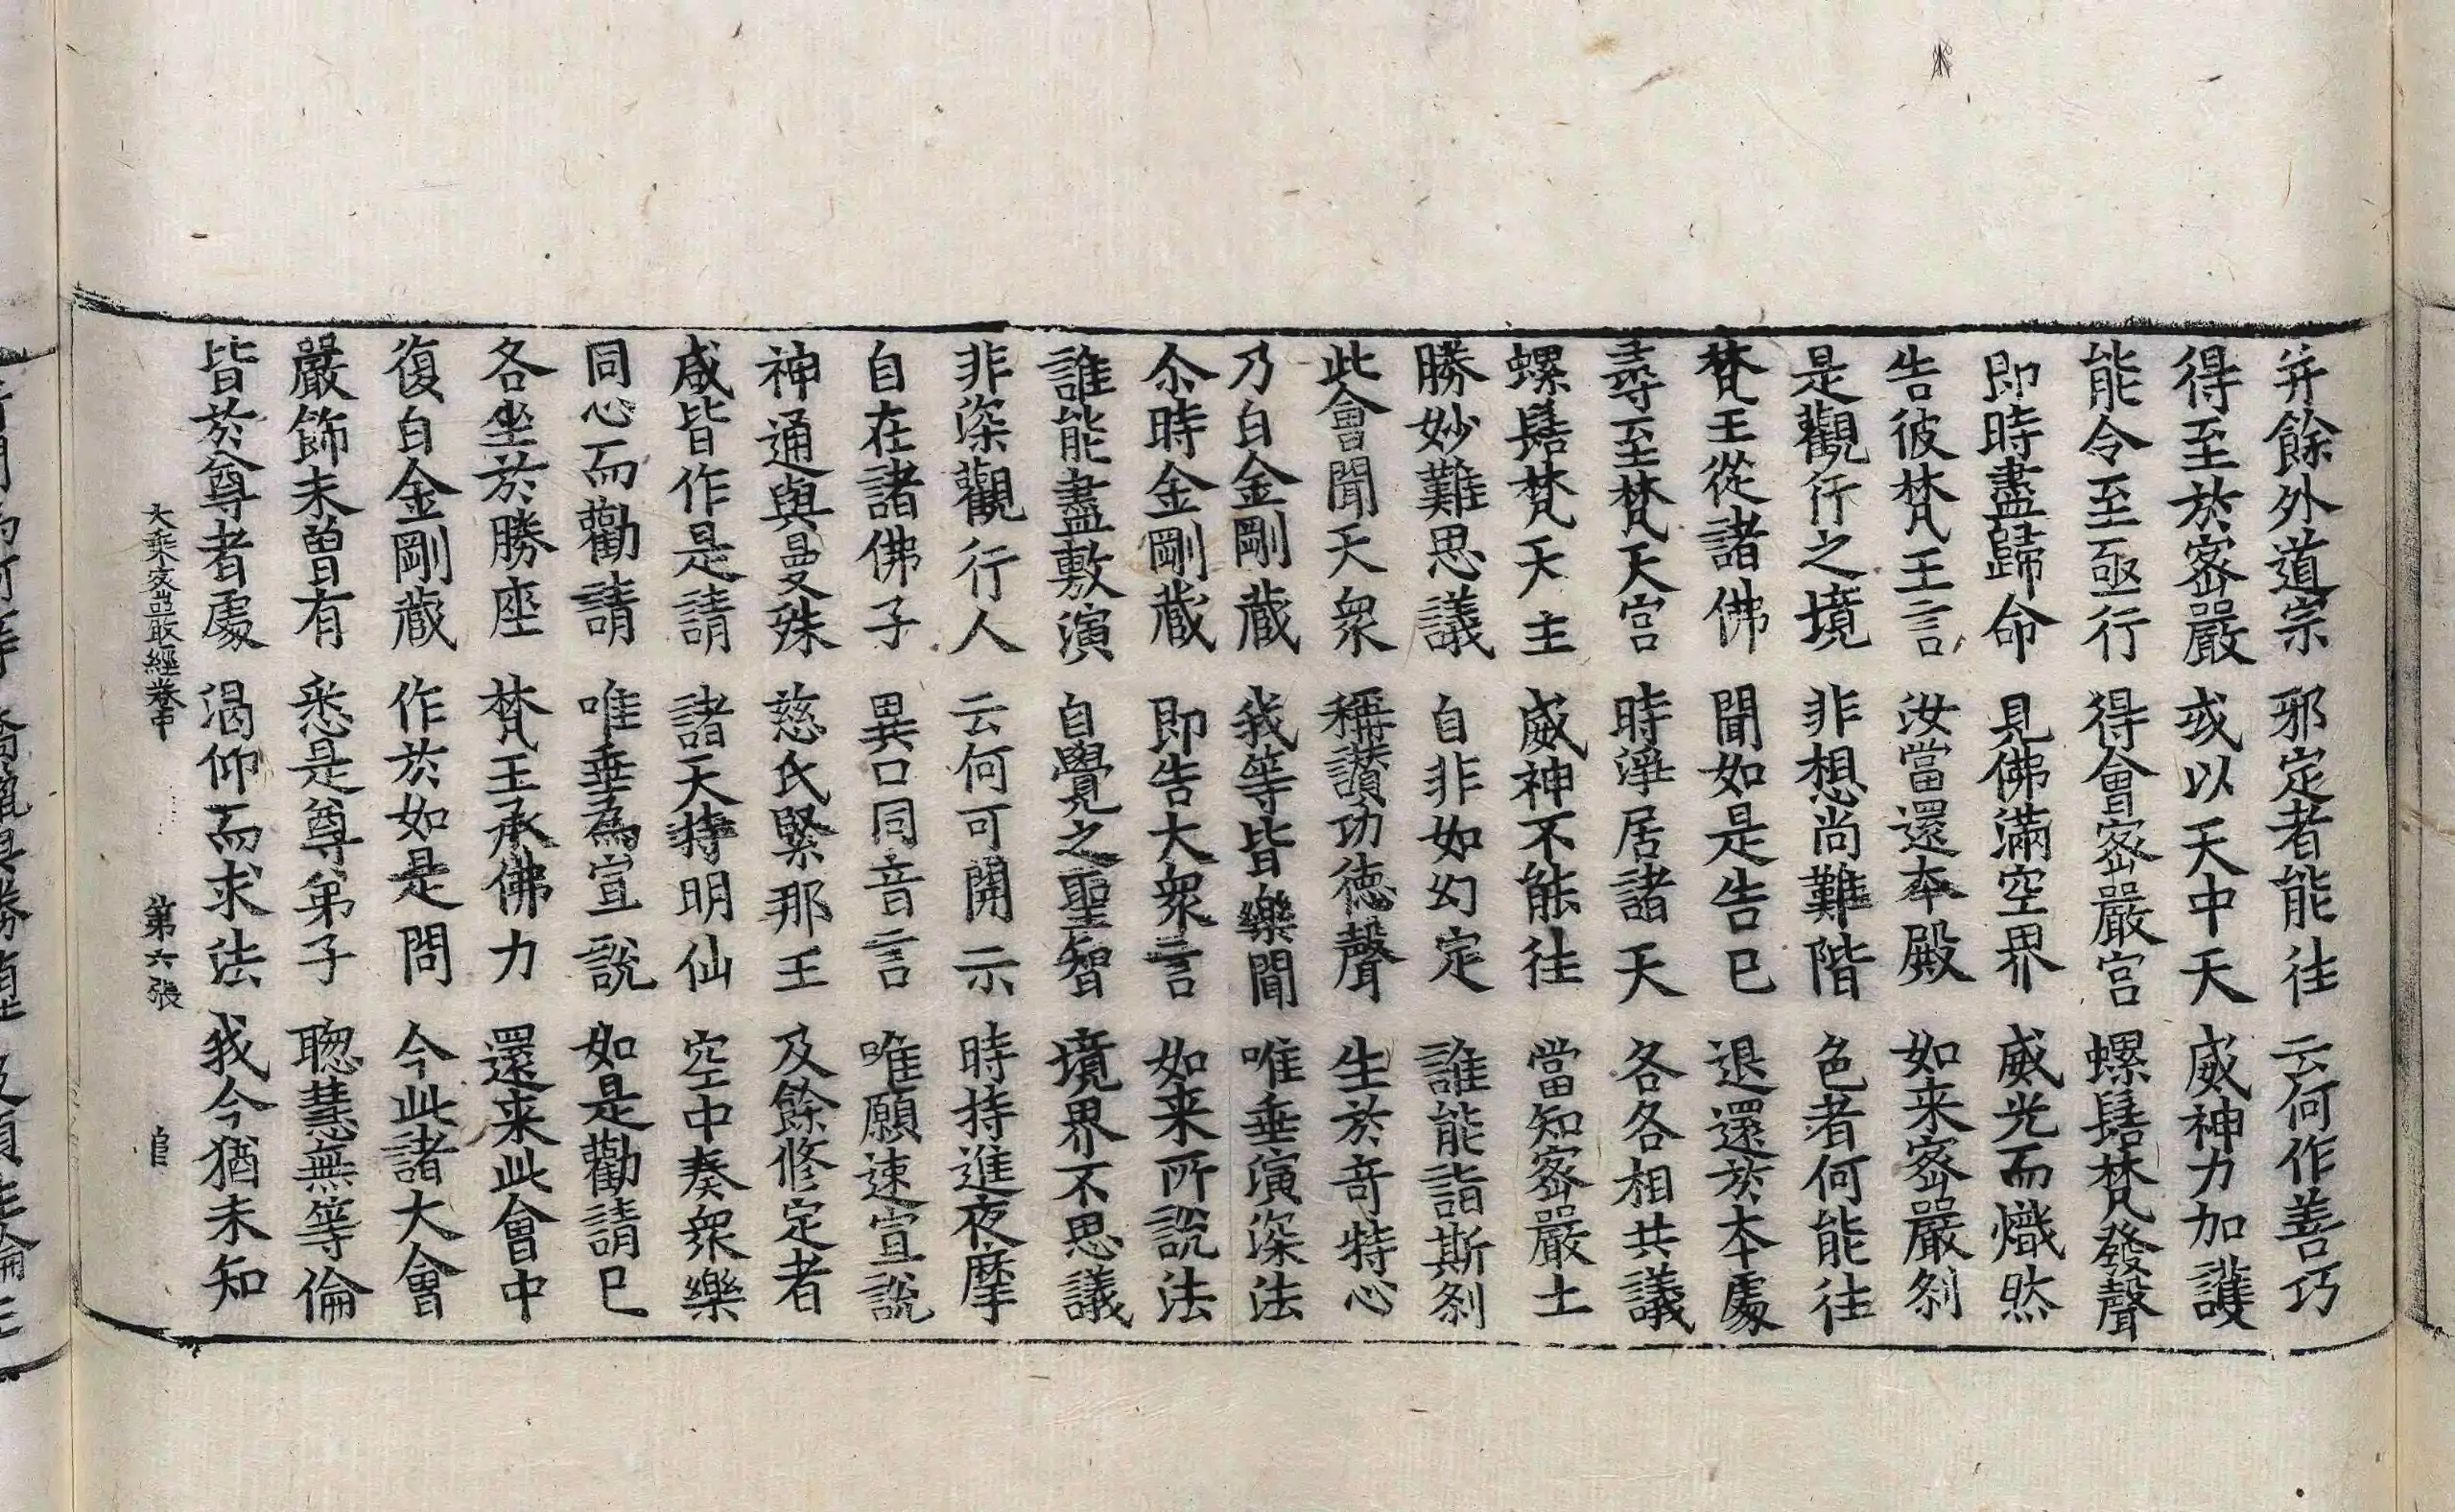 并餘外道宗 邪定者能往 云何作善巧
得至於密嚴 或以天中天 威神力加護
能令至亟行 得會密嚴宮 螺髻梵發聲
即時盡歸命 見佛滿空界 威光而熾然
告彼梵王言 汝當還本殿 如来密嚴刹
是觀行之境 非想尚難階 色者何能往
梵王從諸佛 聞如是告已 退還於本處
尋至梵天宮 時淨居諸天 各各相共議
螺髻梵天主 威神不能往 當知密嚴土
勝妙難思議 自非如幻定 誰能詣斯刹
此會聞天衆 稱讃功德聲 生於奇特心
乃白金剛藏 我等皆樂聞 唯垂演深法
尒時金剛藏 即告大衆言 如来所說法
誰能盡敷演 自覺之聖智 境界不思議
非深觀行人 云何可開示 時持進夜摩
自在諸佛子 異口同音言 唯願速宣說
神通與曼殊 慈氏緊那王 及餘修定者
咸皆作是請 諸天持明仙 空中奏衆樂
同心而勸請 唯垂為宣說 如是勸請已
各坐於勝座 梵王承佛力 還来此會中
復白金剛藏 作於如是問 今此諸大會
嚴飾未曾有 悉是尊弟子 聦慧無等倫
皆於尊者處 渴仰而求法 我今猶未知
大乘密嚴經卷中 第六張